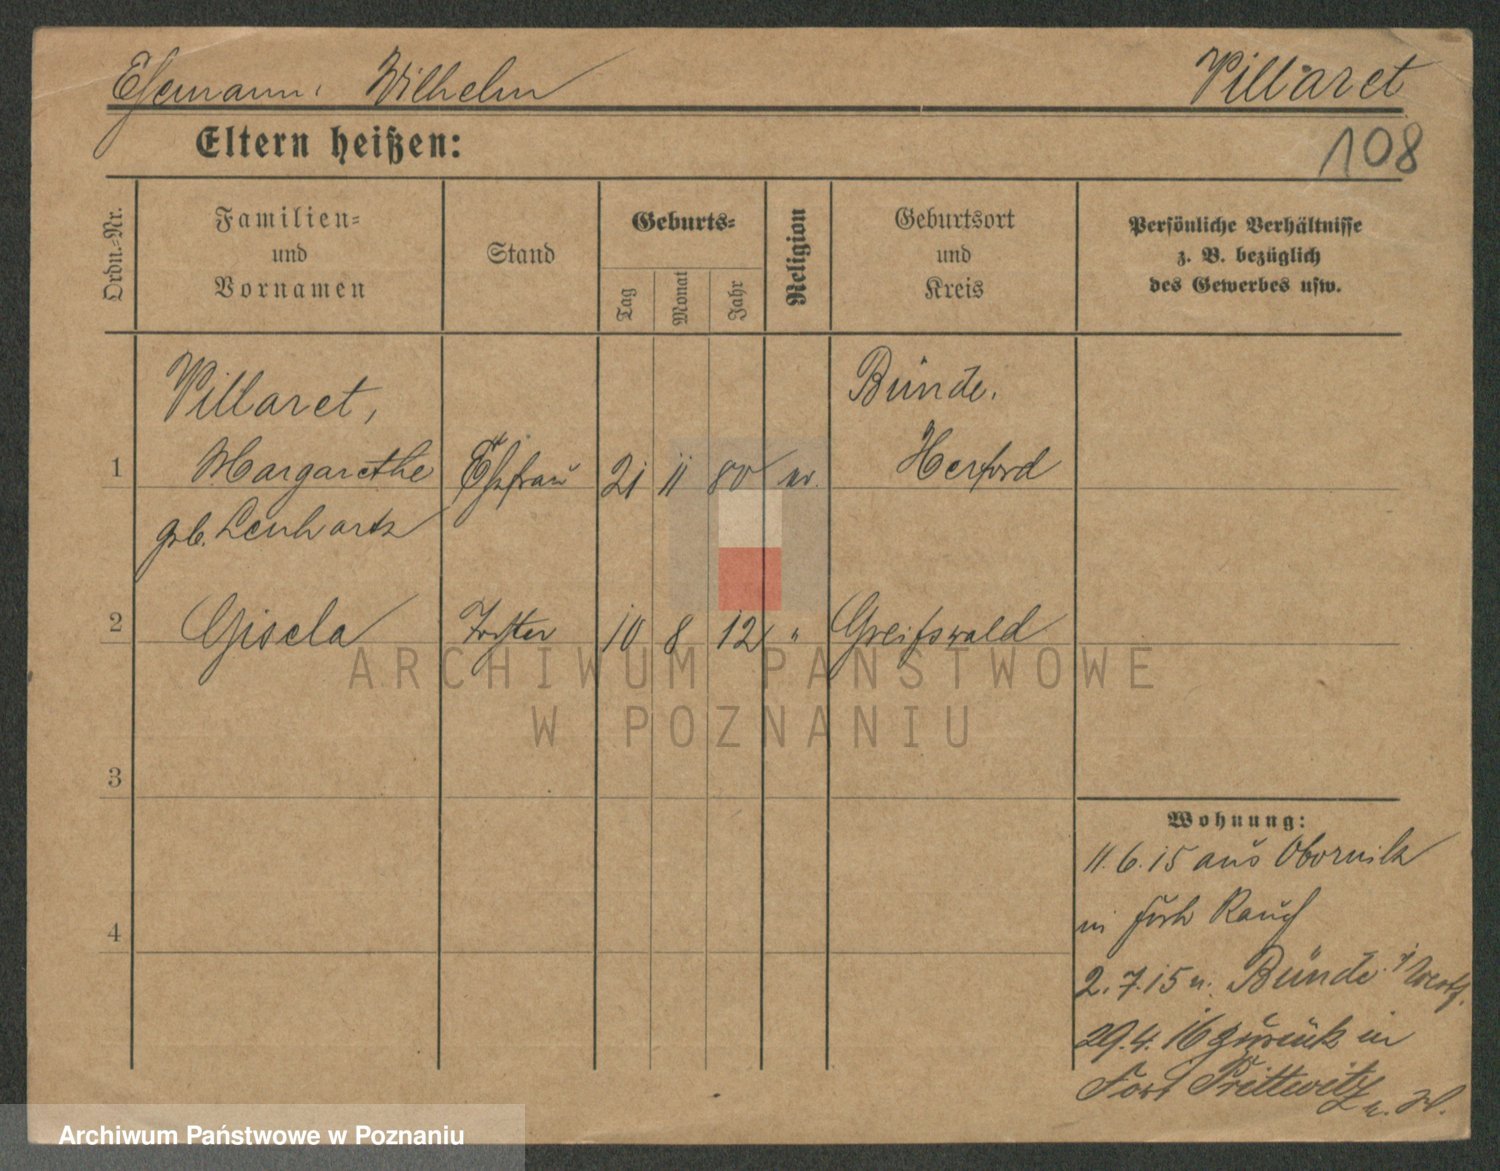 Ehemann: Wilhelm Villaret
Eltern heißen:
108
Ordn.-Nr.
Familien- und Vornamen
Stand
Geburts-
Tag
Monat
Jahr
Religion
Geburtsort und Kreis
Persönliche Verhältnisse
z. B. bezüglich
des Gewerbes usw.
Villaret, Bünde.
1 Margarethe Ehefrau 21 11 80 ev. Herford
geb. Lenhartz
2 Gisela Tochter 10 8 12 " Greifswald
ARCHIWUM PAŃSTWOWE
W POZNANIU
3
Wohnung:
11.6.15 aus Obornik
in Rauch
4
2.7.15 n. Bünde i/Westf.
29.4.16 zurück in
Fort Prittwitz
Archiwum Państwowe w Poznaniu